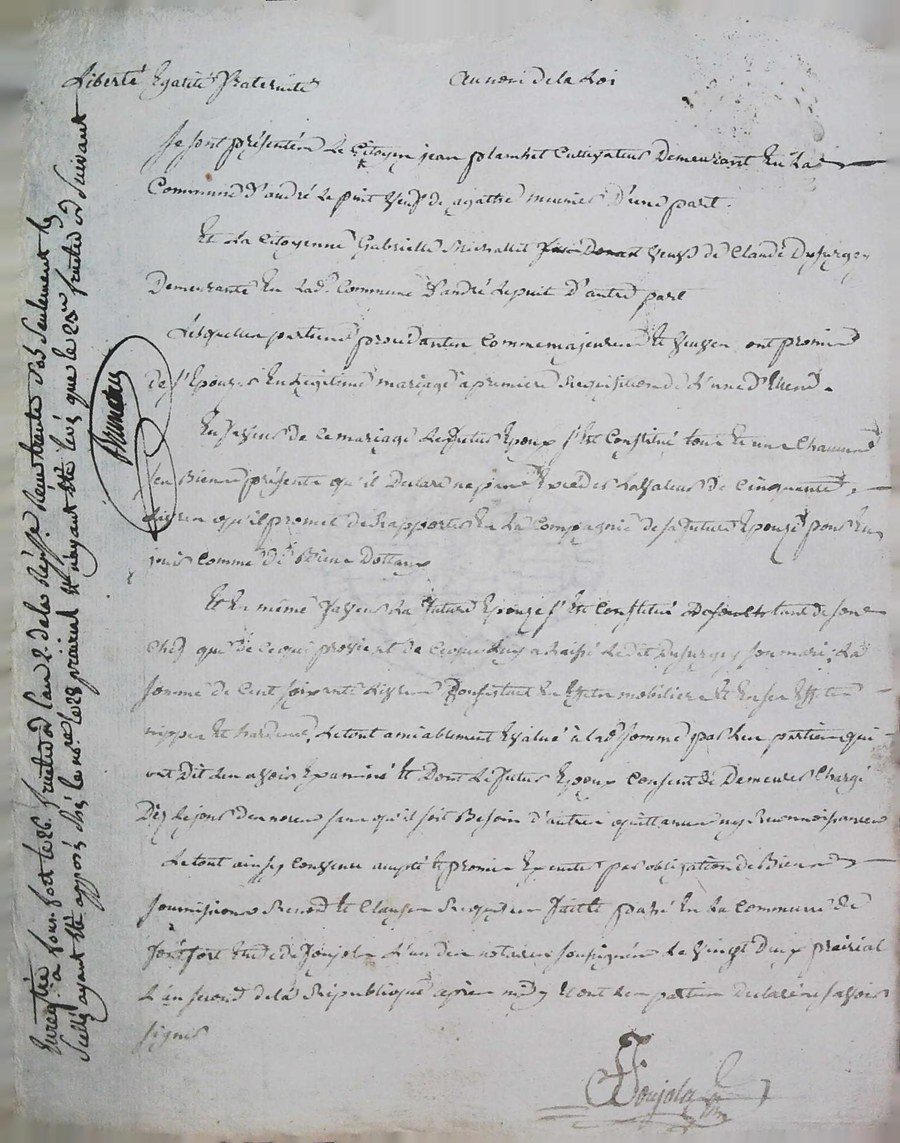 Liberté Egalité Fraternité
Au nom de la Loi
Se sont présentés Le Citoyen jean plambet Cultivateur Demeurant En La
Commune d'andré Le puit veuf de agathe meunier D'une part.
Et La Citoyenne Gabrielle Michallet veuve de Claude Dussurgey
Demeurante En Lad. Commune d'andré Le puit D'autre part
Lesquelles parties procedantes comme majeures Et veuves ont promis
de s'Epouser En Legitime mariage a premiere Requisition de L'une d'Elles.
En faveur de ce mariage Le futur Epoux s'Est Constitué tous Et uns Chacuns
ses Biens présents qu'il Declare ne point Exceder La valeur de Cinquante
Livres qu'il promet de Rapporter En La Compagnie de sa future Epouze pour En
jouir Comme de Biens Dottaux
Et En même faveur La future Epouze s'Est Constitué tant de son
Chef que de ce qui provient de ce que Luy a Laissé Ledit Dussurgey son mari, La
somme de Cent soixante Livres Consistant En Effets mobiliers Et En ses Effets
nippes Et hardes, Le tout amiablement Evalué a lad. somme par Les parties qui
ont Dit Les avoir Examiné Et Dont Le futur Epoux Consent de Demeurer Chargé
Dez Le jour des noces sans qu'il soit Besoin d'autres quittances ny Reconnoissances
Le tout ainsy Convenu accepté Et promis Executer par obligation de Biens
soumissions Renon. Et Clauses Requises fait Et passé En La Commune de
fontfort Etude de Soujols L'un des notaires soussignés Le vingt Deux prairial
L'an second de La Republique après midy Et ont Les parties Declaré ne savoir
signer
Soujola
Enregistré à fontfort le 26 fructidor l'an 2. de la Répque Reçu trente sols seulement le
scellé ayant été apposé chés le nore le 28 prairial Et n'ayant été levé que le 25 fructidor suivant
Bruneau